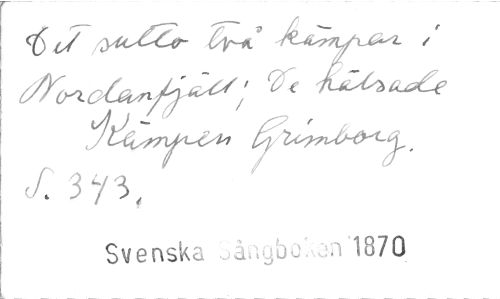 Det sutto två kämpar i
Nordanfjäll; De hälsade
Kämpen Grimborg.
S. 343.
Svenska Sångboken 1870